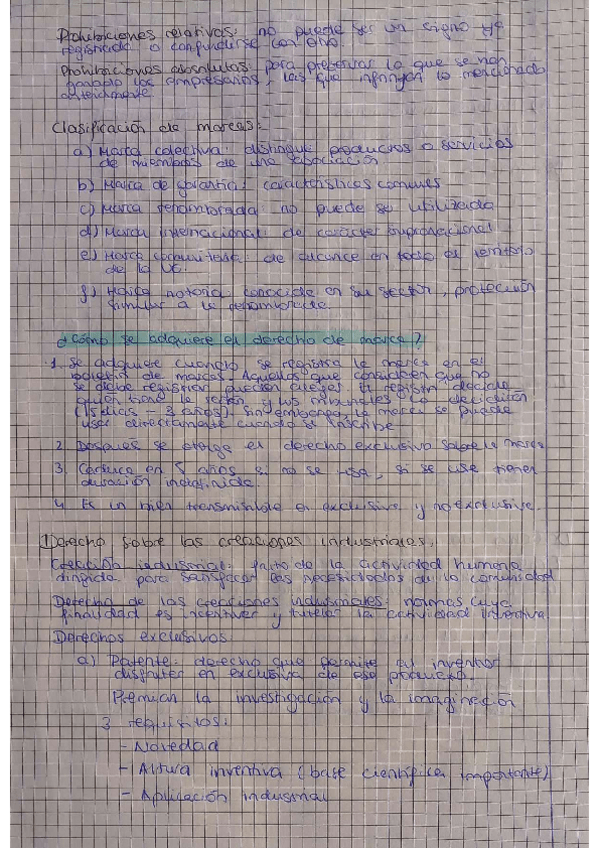 Prohibiciones relativas: no puede ser un signo ya
registrado o confundirse con otro.
Prohibiciones absolutas: para preservar lo que se han
ganado los empresarios, las que infrinjan lo mencionado
anteriormente.
Clasificación de marcas:
a) Marca colectiva: distingue productos o servicios
de miembros de una asociación
b) Marca de garantía: características comunes
c) Marca renombrada: no puede ser utilizada
d) Marca internacional: de carácter supranacional
e) Marca comunitaria: de alcance en todo el territorio
de la UE.
f) Marca notoria: conocida en su sector, protección
similar a la renombrada.
¿Cómo se adquiere el derecho de marca?
1. Se adquiere cuando se registra la marca en el
boletín de marcas. Aquellos que consideren que no
se debe registrar pueden alegar. El registro decide
quién tiene la razón y los tribunales la deciden
(15 días - 3 años). Sin embargo, la marca se puede
usar directamente cuando se inscribe
2. Después se otorga el derecho exclusivo sobre la marca
3. Caduca en 5 años si no se usa, si se usa tienen
duración indefinida.
4. Es un bien transmisible en exclusiva y no exclusiva.
Derecho sobre las creaciones industriales.
Creación industrial: fruto de la actividad humana
dirigida para satisfacer las necesidades de la comunidad
Derecho de las creaciones industriales: normas cuya
finalidad es incentivar y tutelar la actividad inventiva
Derechos exclusivos
a) Patente: derecho que permite al inventor
disfrutar en exclusiva de ese producto.
Premian la investigación y la imaginación
3 requisitos:
- Novedad
- Altura inventiva (base científica importante)
- Aplicación industrial